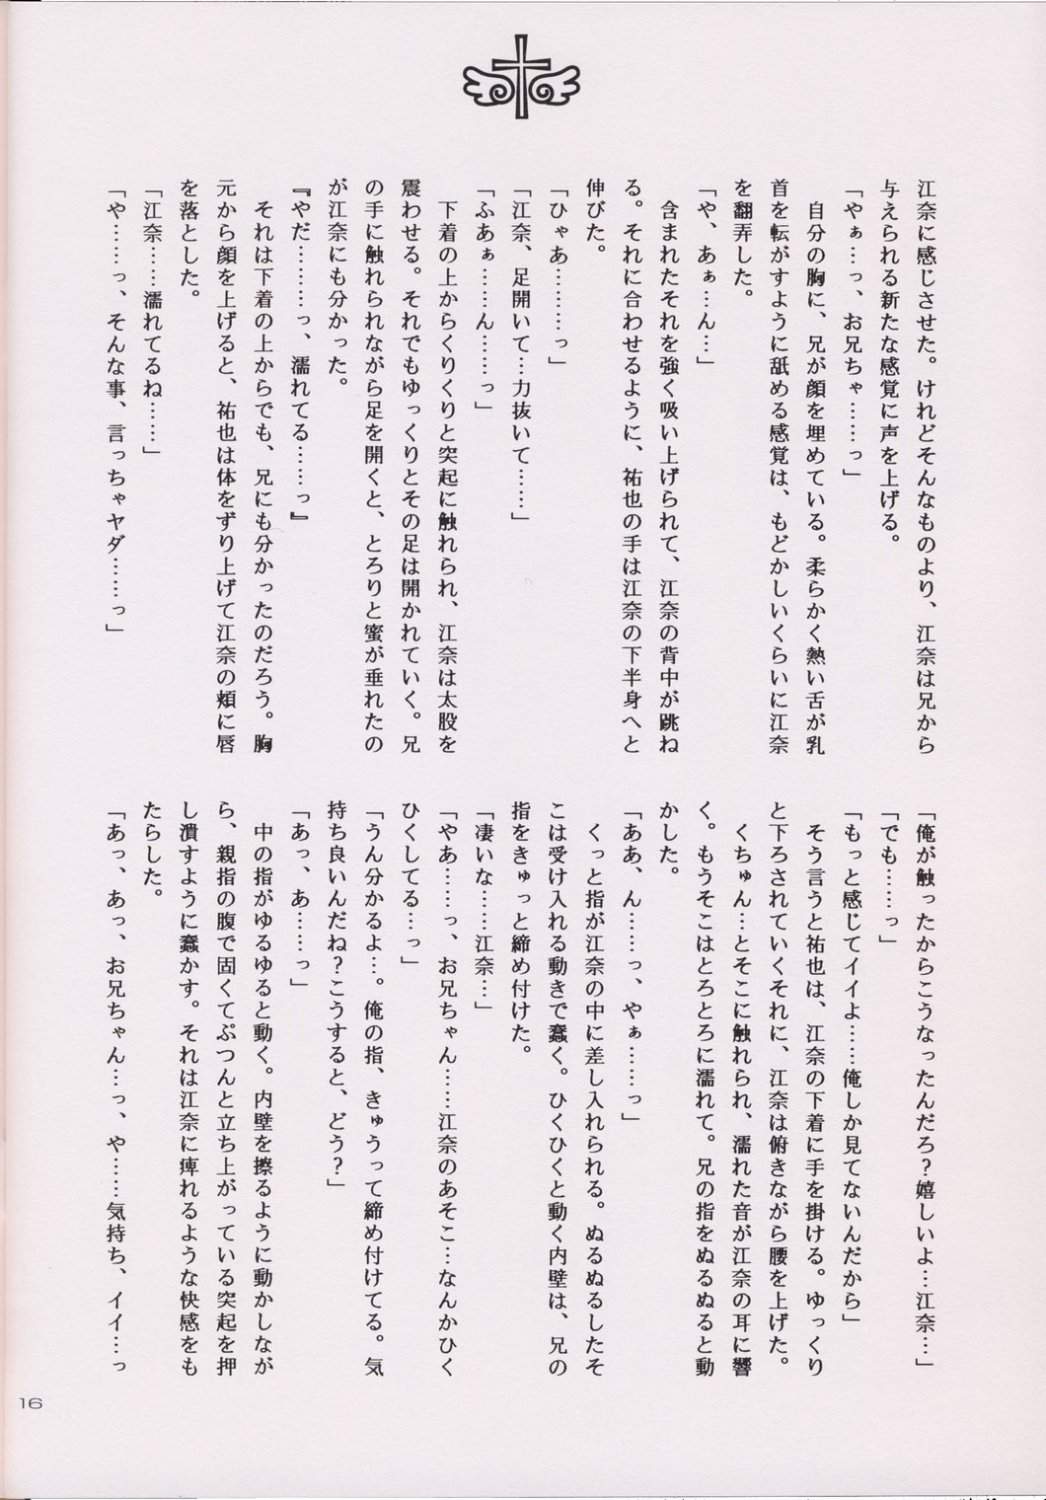 江奈に感じさせた。けれどそんなものより、江奈は兄から
与えられる新たな感覚に声を上げる。
「やぁ…っ、お兄ちゃ……っ」
自分の胸に、兄が顔を埋めている。柔らかく熱い舌が乳
首を転がすように舐める感覚は、もどかしいくらいに江奈
を翻弄した。
「や、あぁ…ん…」
含まれたそれを強く吸い上げられて、江奈の背中が跳ね
る。それに合わせるように、祐也の手は江奈の下半身へと
伸びた。
「ひゃあ………っ」
「江奈、足開いて…力抜いて……」
「ふあぁ……ん……っ」
下着の上からくりくりと突起に触れられ、江奈は太股を
震わせる。それでもゆっくりとその足は開かれていく。兄
の手に触れられながら足を開くと、とろりと蜜が垂れたの
が江奈にも分かった。
『やだ………っ、濡れてる……っ』
それは下着の上からでも、兄にも分かったのだろう。胸
元から顔を上げると、祐也は体をずり上げて江奈の頬に唇
を落とした。
「江奈……濡れてるね……」
「や……っ、そんな事、言っちゃヤダ……っ」
「俺が触ったからこうなったんだろ？嬉しいよ…江奈…」
「でも……っ」
「もっと感じてイイよ……俺しか見てないんだから」
そう言うと祐也は、江奈の下着に手を掛ける。ゆっくり
と下ろされていくそれに、江奈は俯きながら腰を上げた。
くちゅん…とそこに触れられ、濡れた音が江奈の耳に響
く。もうそこはとろとろに濡れて。兄の指をぬるぬると動
かした。
「ああ、ん……っ、やぁ……っ」
くっと指が江奈の中に差し入れられる。ぬるぬるしたそ
こは受け入れる動きで蠢く。ひくひくと動く内壁は、兄の
指をきゅっと締め付けた。
「凄いな……江奈…」
「やあ……っ、お兄ちゃん……江奈のあそこ…なんかひく
ひくしてる…っ」
「うん分かるよ…。俺の指、きゅうって締め付けてる。気
持ち良いんだね？こうすると、どう？」
「あっ、あ……っ」
中の指がゆるゆると動く。内壁を擦るように動かしなが
ら、親指の腹で固くてぷつんと立ち上がっている突起を押
し潰すように蠢かす。それは江奈に痺れるような快感をも
たらした。
「あっ、あっ、お兄ちゃん…っ、や……気持ち、イイ…っ
16